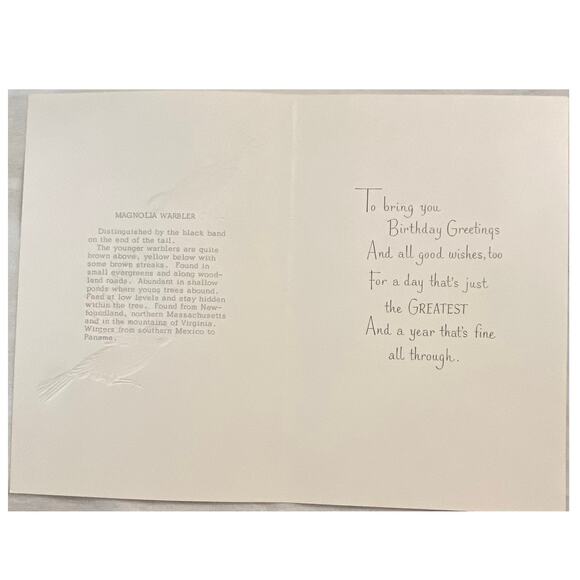 MAGNOLIA WARBLER
Distinguished by the black band
on the end of the tail.
The younger warblers are quite
brown above, yellow below with
some brown streaks. Found in
small evergreens and along wood-
land roads. Abundant in shallow
ponds where young trees abound.
Feed at low levels and stay hidden
within the tree. Found from New-
foundland, northern Massachusetts
and in the mountains of Virginia.
Winters from southern Mexico to
Panama.
To bring you
Birthday Greetings
And all good wishes, too
For a day that's just
the GREATEST
And a year that's fine
all through.